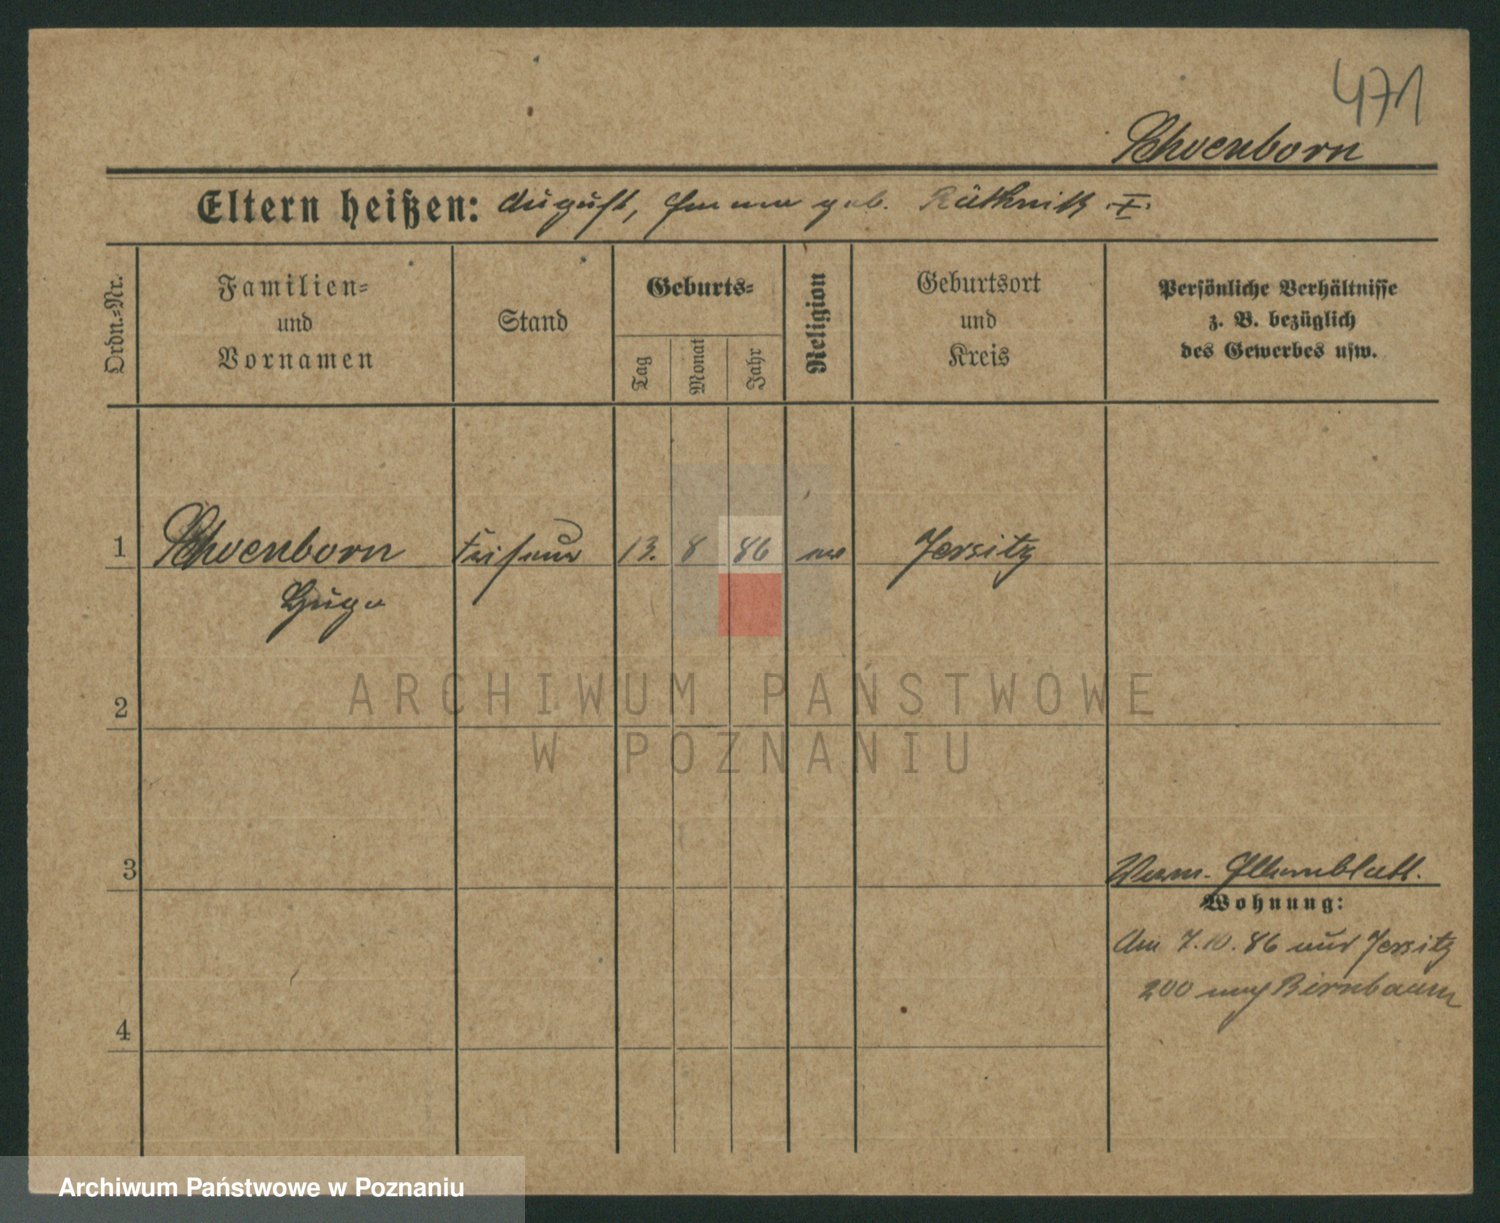 471
Schoenborn
Eltern heißen: August, Emma geb. Rütknik I.
Ordn.=Nr.
Familien= und Vornamen
Stand
Geburts=
Tag
Monat
Jahr
Religion
Geburtsort und Kreis
Persönliche Verhältnisse z. B. bezüglich des Gewerbes usw.
1 Schoenborn Friseur 13. 8 86 ev Jersitz
Hugo
2
ARCHIWUM PAŃSTWOWE
W POZNANIU
3
Verm. Elternblatt.
Wohnung:
Am 7.10.86 aus Jersitz
200 nach Birnbaum
4
Archiwum Państwowe w Poznaniu